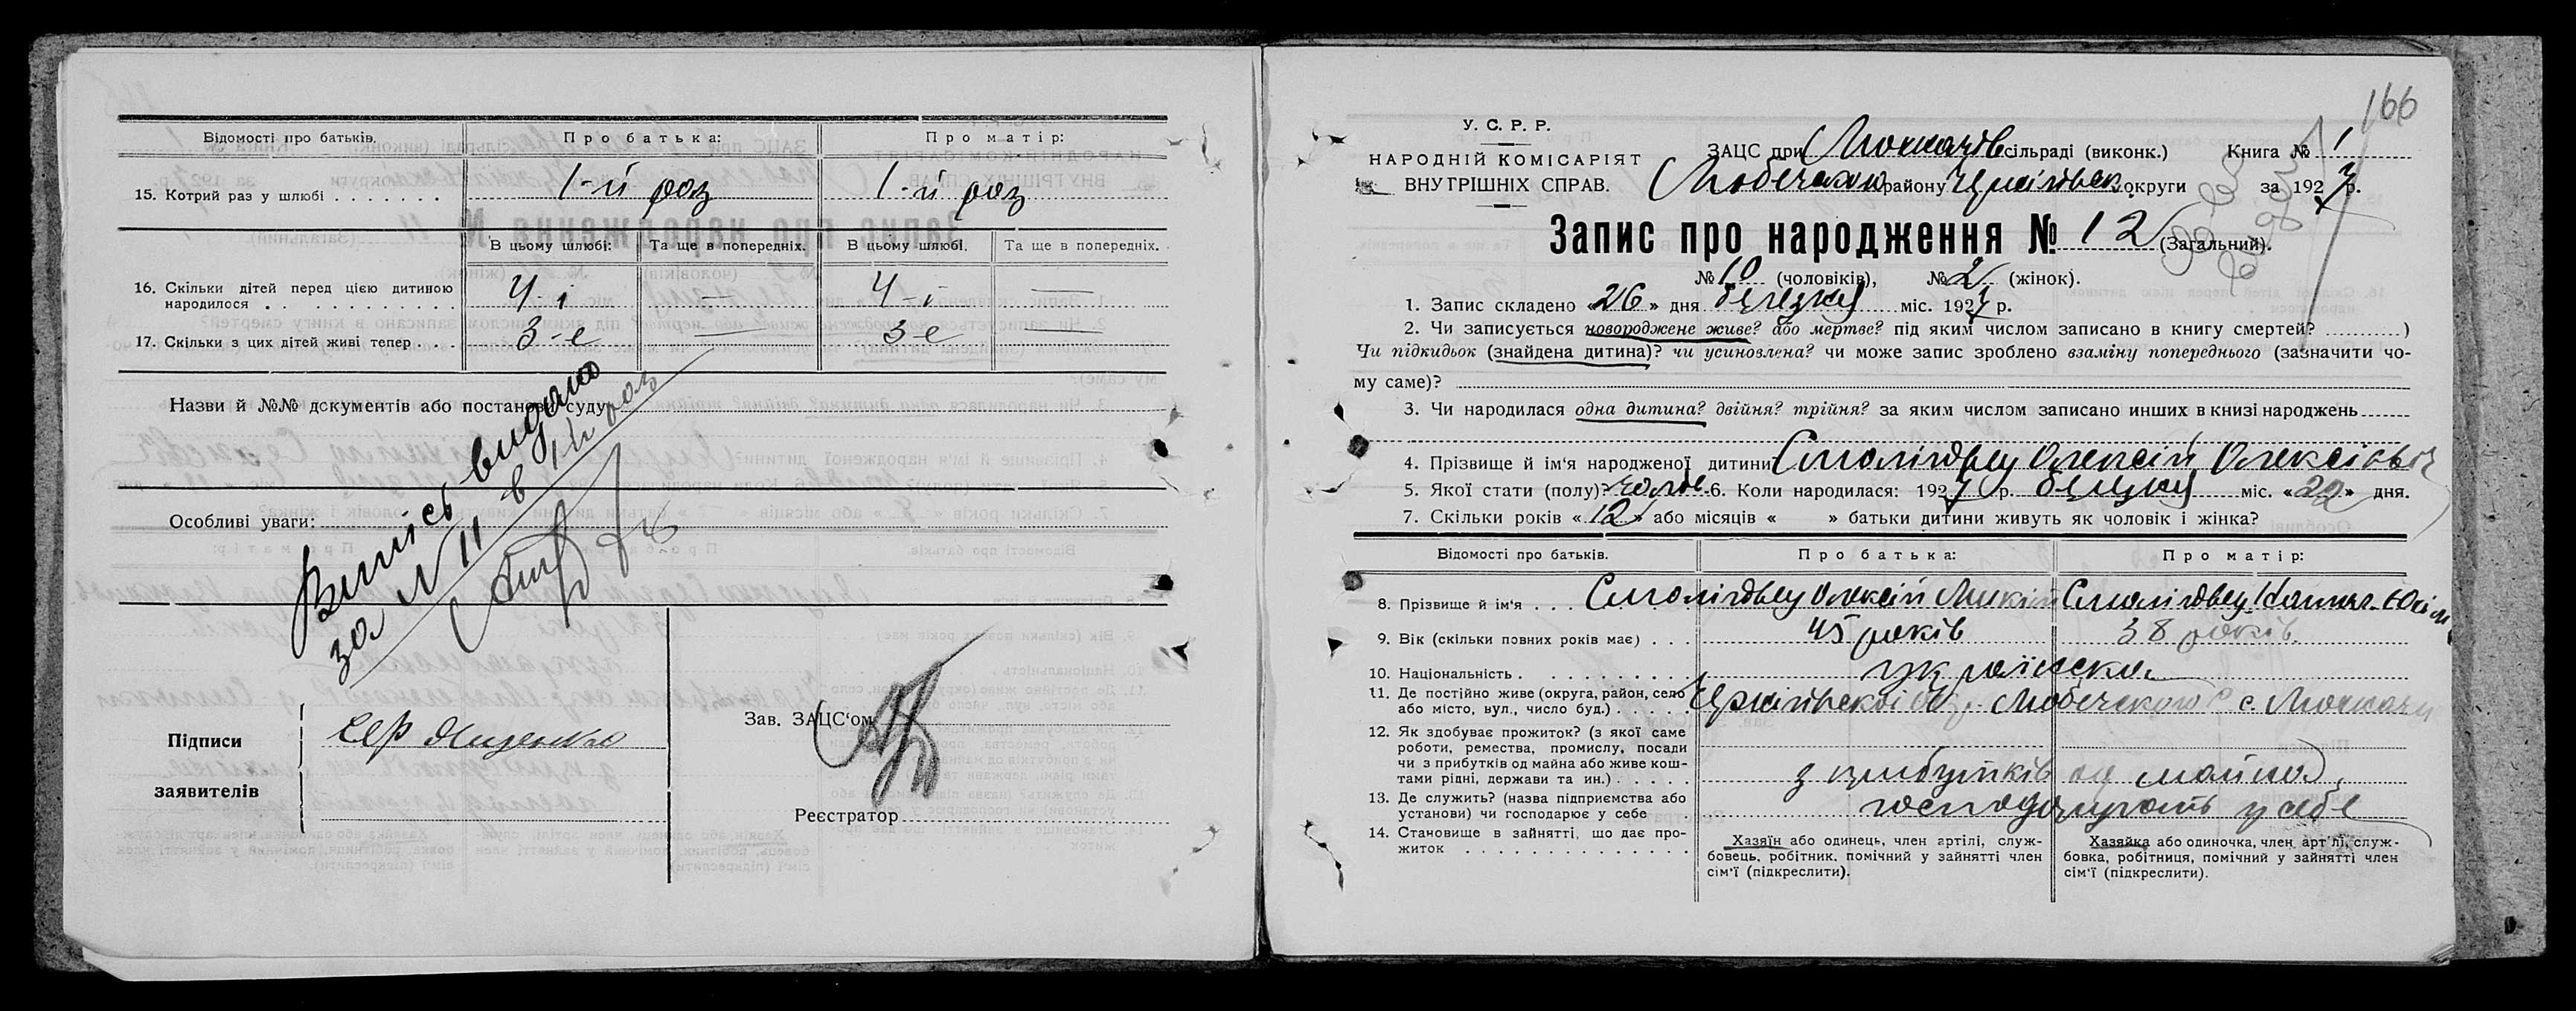 Відомості про батьків.
Про батька:
Про матір:
15. Котрий раз у шлюбі . . . . . . .
1-й раз
1-й раз
В цьому шлюбі:
Та ще в попередніх.
В цьому шлюбі.
Та ще в попередніх.
16. Скільки дітей перед цією дитиною
народилося . . . . . . . . . . . .
4-і
—
4-і
—
17. Скільки з цих дітей живі тепер . . .
3-е
—
3-е
—
Назви й №№ документів або постанови суду
Випись видано
за № 11 в
Особливі уваги:
Підписи
заявителів
Зав. ЗАЦС‘ом
Реєстратор
166
У. С. Р. Р.
НАРОДНІЙ КОМІСАРІЯТ
ВНУТРІШНІХ СПРАВ.
ЗАЦС при сільраді (виконк.) Книга № 1
Любечського району Чернігівськ. округи за 1927 р.
Запис про народження № 12 (Загальний).
№ 10 (чоловіків), № 2 (жінок).
1. Запис складено « 26 » дня березня міс. 1927 р.
2. Чи записується новороджене живе? або мертве? під яким числом записано в книгу смертей? )
Чи підкидьок (знайдена дитина)? чи усиновлена? чи може запис зроблено взаміну попереднього (зазначити чо-
му саме)?
3. Чи народилася одна дитина? двійня? трійня? за яким числом записано инших в книзі народжень
4. Прізвище й ім‘я народженої дитини? Олексій Олексієвич
5. Якої стати (полу)? 6. Коли народилася: 1927 р. березня міс. « 22 » дня.
7. Скільки років « 12 » або місяців « » батьки дитини живуть як чоловік і жінка?
Відомості про батьків.
Про батька:
Про матір:
8. Прізвище й ім‘я . . .
Олексій
9. Вік (скільки повних років має) . . .
45 років
38 років
10. Національність . . . . . . . . . . .
українська
11. Де постійно живе (округа, район, село
або місто, вул., число буд.) . . . . .
Чернігівської Окр. Любечського р с.
12. Як здобуває прожиток? (з якої саме
роботи, ремества, промислу, посади
чи з прибутків од майна або живе кош-
тами рідні, держави та ин.) . . . . .
з прибутків од майна
13. Де служить? (назва підприємства або
установи) чи господарює у себе
господарують у себе
14. Становище в зайнятті, що дає про-
житок . . . . . . . . . . . . . . .
Хазяїн або одинець, член артілі, служ-
бовець, робітник, помічний у зайнятті член
сім‘ї (підкреслити).
Хазяйка або одиночка, член артілі, служ-
бовка, робітниця, помічний у зайнятті член
сім‘ї (підкреслити).